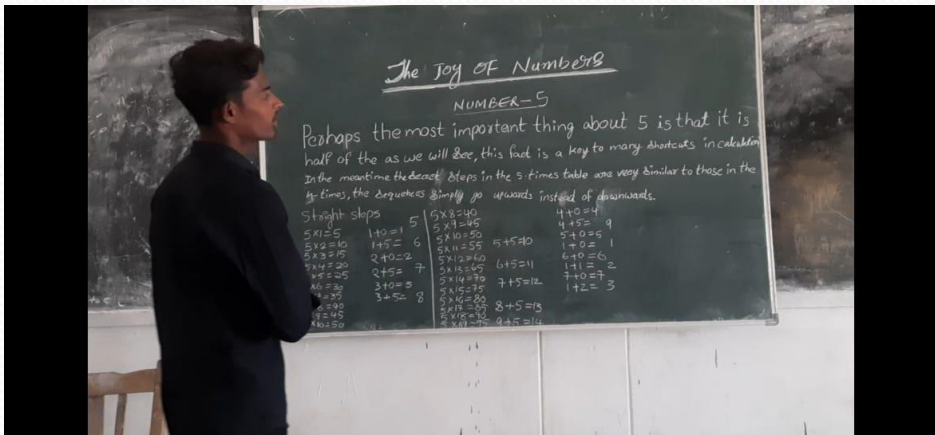 The Joy OF Numbers
NUMBER-5
Perhaps the most important thing about 5 is that it is
half of the as we will see, this fact is a key to many shortcuts in calculation
In the meantime the secret steps in the 5-times table are very similar to those in the
4-times, the sequences simply go upwards instead of downwards.
Straight steps
5×1=5
5×2=10
5×3=15
5×4=20
5×5=25
×6=30
=35
=40
9=45
10=50
1+0=1
1+5= 6
2+0=2
2+5= 7
3+0=3
3+5= 8
5
5×8=40
5×9=45
5×10=50
5×11=55 5+5=10
5×12=60
5×13=65 6+5=11
5×14=70
5×15=75 7+5=12
5×16=80
5×17=85 8+5=13
5×18=90
5×19=95 9+5=14
4+0=4
4+5= 9
5+0=5
1+0= 1
6+0=6
1+1= 2
7+0=7
1+2= 3